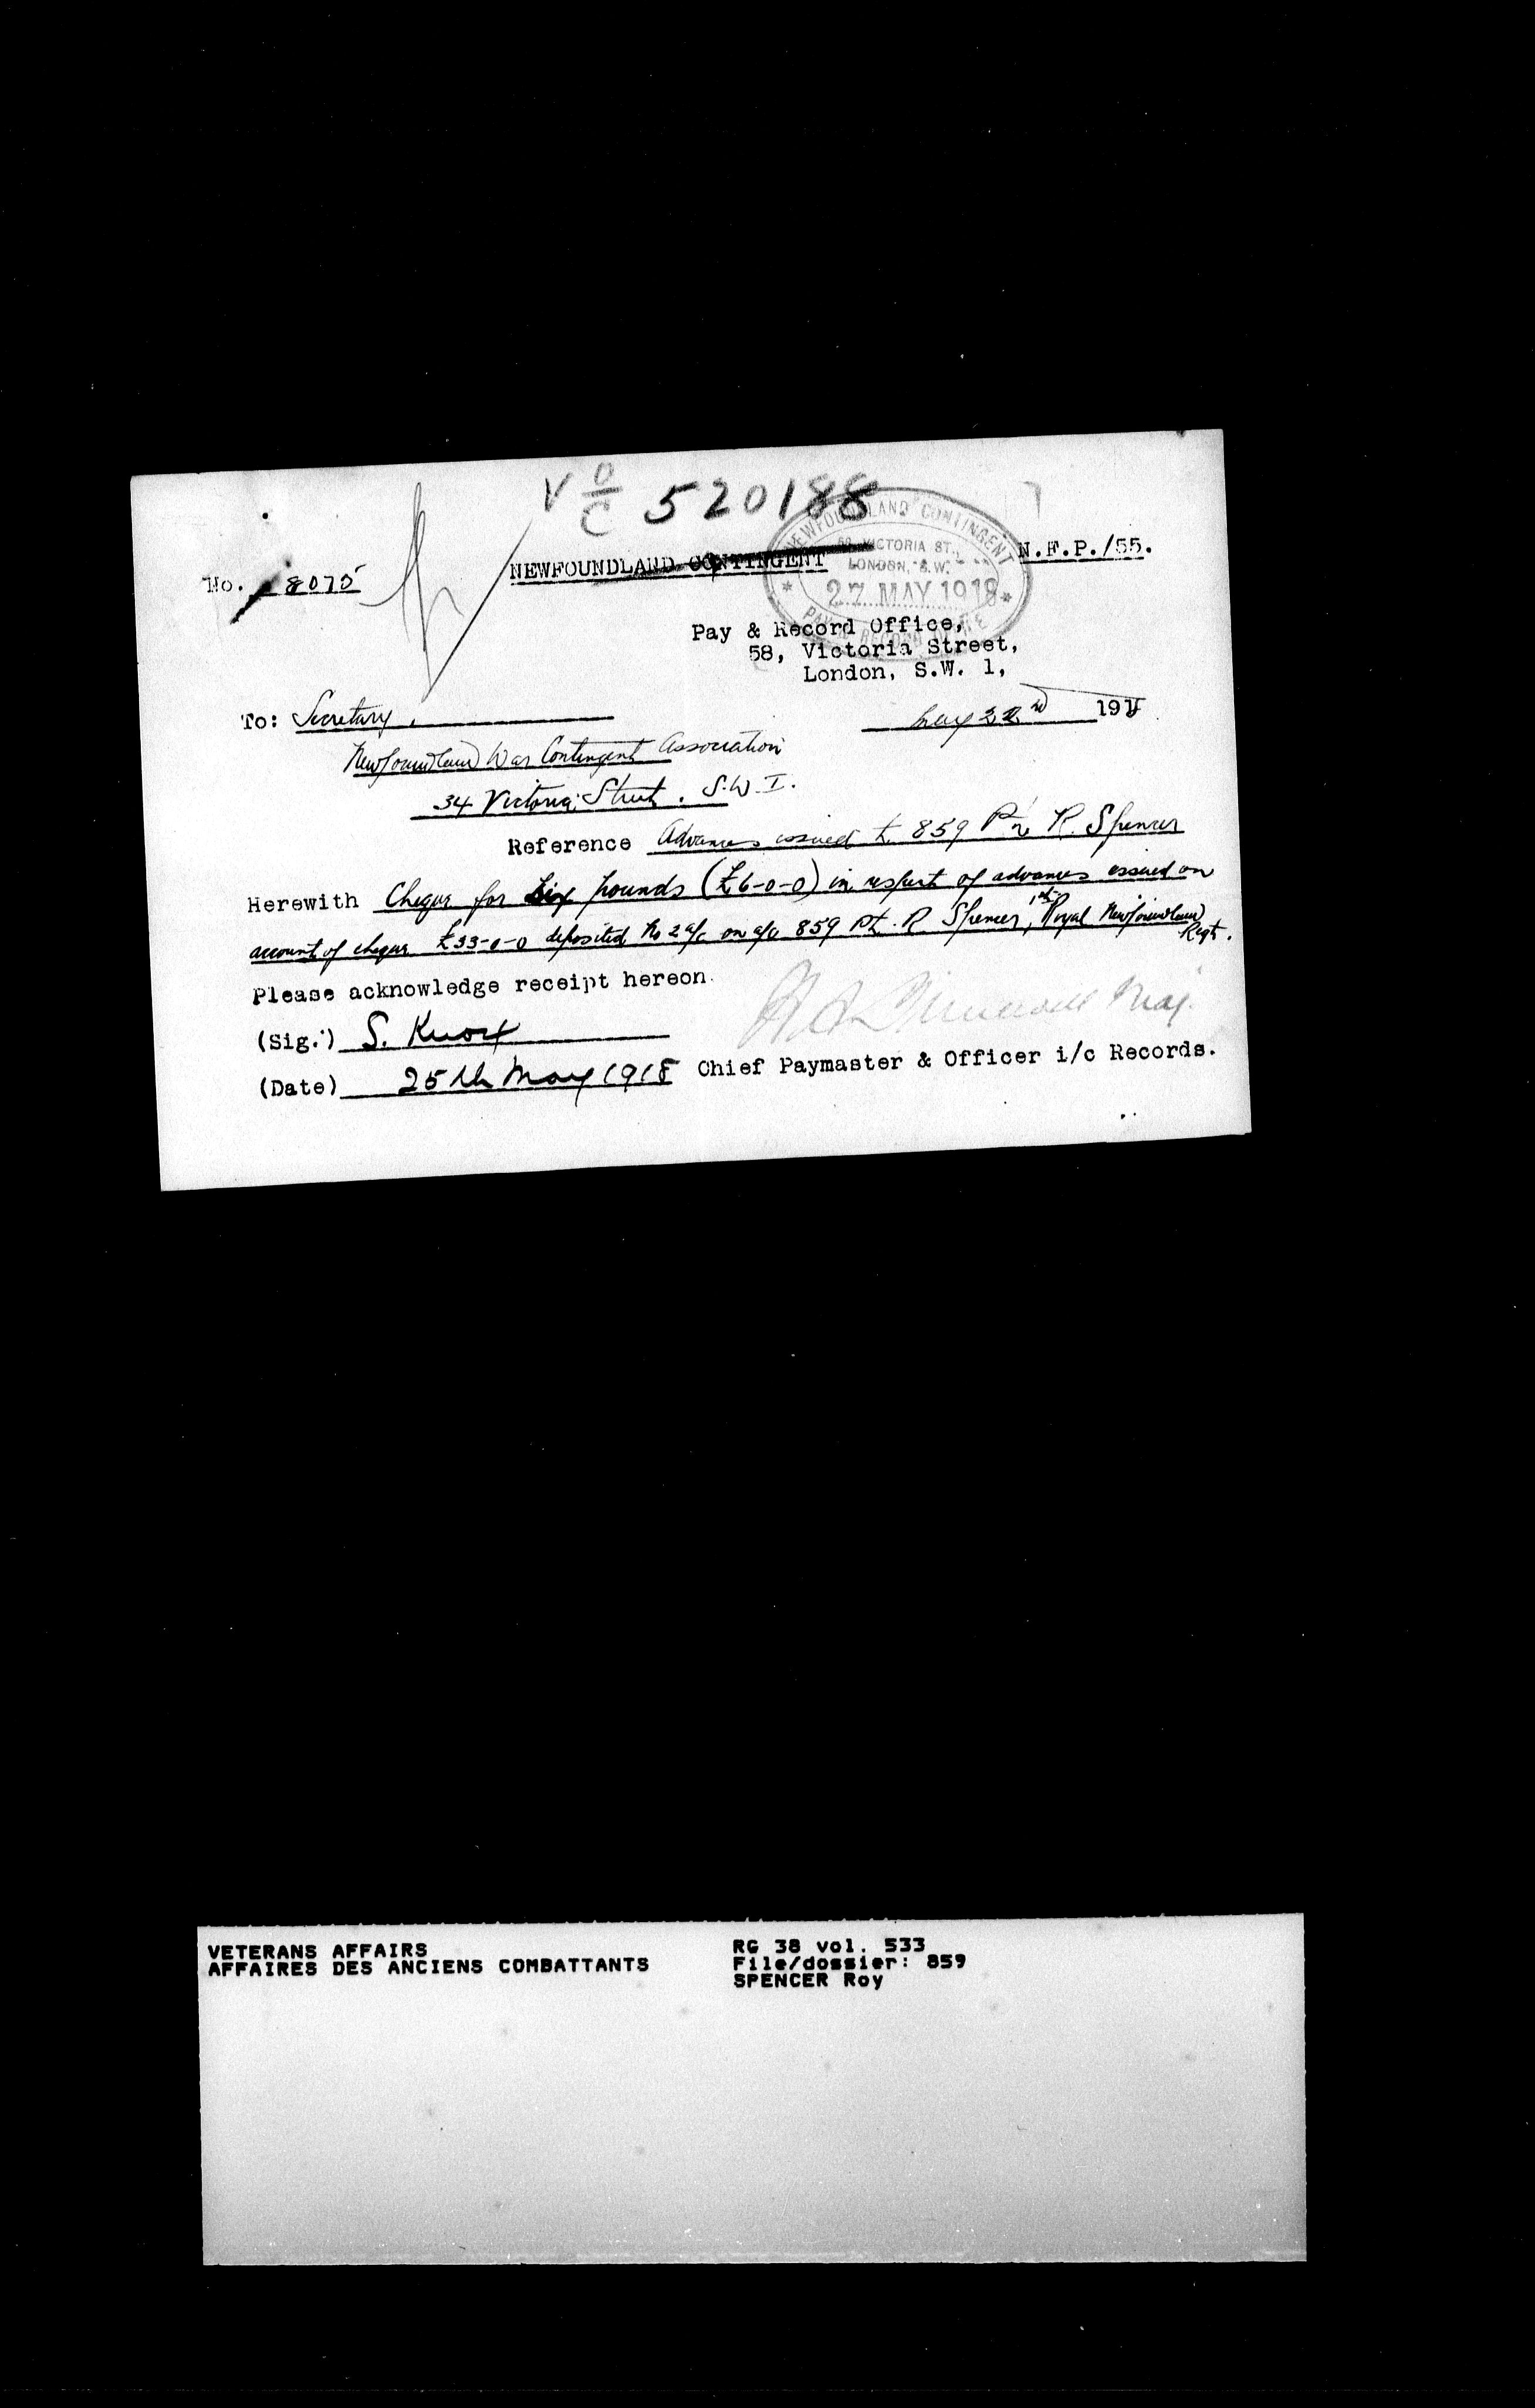 V O/C 520188
NEWFOUNDLAND CONTINGENT
58, VICTORIA ST.,
LONDON, S.W.
27 MAY 1918
PAY & RECORD OFFICE
No. 8075
NEWFOUNDLAND CONTINGENT
N.F.P./55.
Pay & Record Office,
58, Victoria Street,
London, S.W. 1,
May 22nd 191
To: Secretary,
Newfoundland War Contingent Association
34 Victoria Street. S.W.I.
Reference Advances issued to 859 Pte R. Spencer
Herewith Cheque for Six pounds (£6-0-0) in respect of advances issued on
account of cheque £33-0-0 deposited No 2 a/c on a/c 859 Pt. R Spencer, 1st Royal Newfoundland Regt.
Please acknowledge receipt hereon.
(Sig.) S. Knox
Maj.
(Date) 25th May 1918 Chief Paymaster & Officer i/c Records.
VETERANS AFFAIRS
AFFAIRES DES ANCIENS COMBATTANTS
RG 38 vol. 533
File/dossier: 859
SPENCER Roy